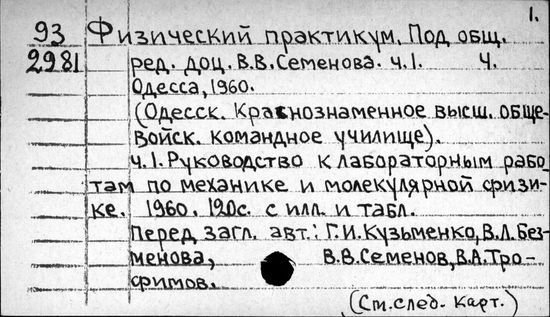 1.
93 Физический практикум. Под общ.
2981 ред. доц. В.В.Семенова. ч.1. Ч.
Одесса, 1960.
(Одесск. Краснознаменное высш. обще-
войск. командное училище).
ч.1. Руководство к лабораторным рабо-
там по механике и молекулярной физи-
ке. 1960. 120с. с илл. и табл.
Перед загл. авт.: Г.И.Кузьменко, В.Л.Без-
менова, В.В.Семенов, В.А.Тро-
фимов.
(См.след. карт.)